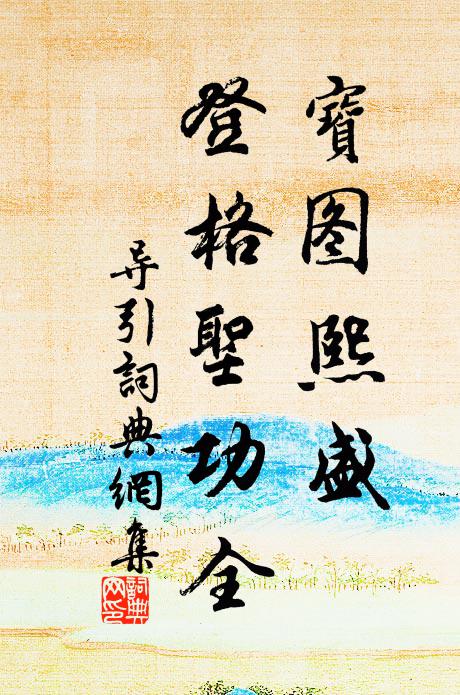 寶图熙盛
登格聖功全
导引詞典網集
詞典网印